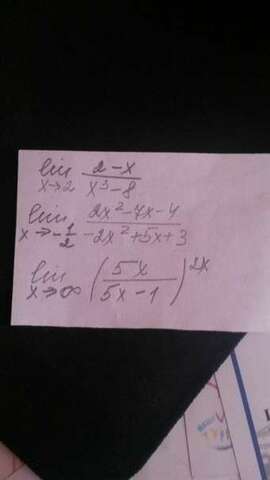 lim x→2 (2-x)/(x³-8)
lim x→-1/2 (2x²-7x-4)/(-2x²+5x+3)
lim x→∞ (5x/(5x-1))^2x